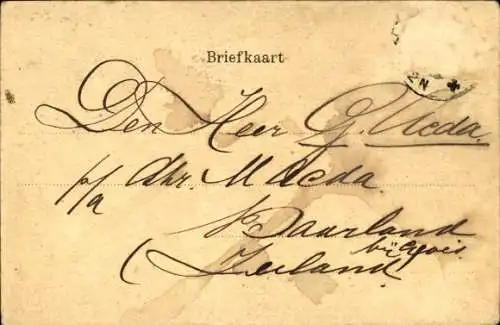 Briefkaart
Den Heer G. Ucda.
p/a Ahr. Macda
Baarland
bij Goes
(Zeeland)